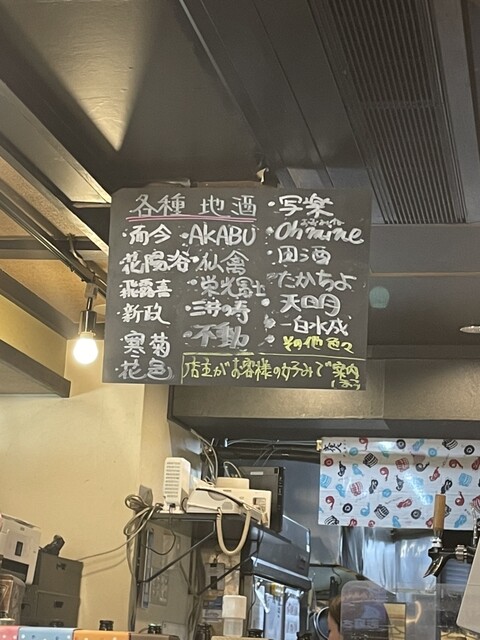 各種 地酒
・而今
花陽浴
飛露喜
・新政
・寒菊
・花邑
・AKABU
・仙禽
・栄光冨士
・三井の寿
・不動
・写楽
・Ohmine
・田酒
・たかちよ
・天明
・一白水成
その他色々
店主がお客様の好みでご案内します